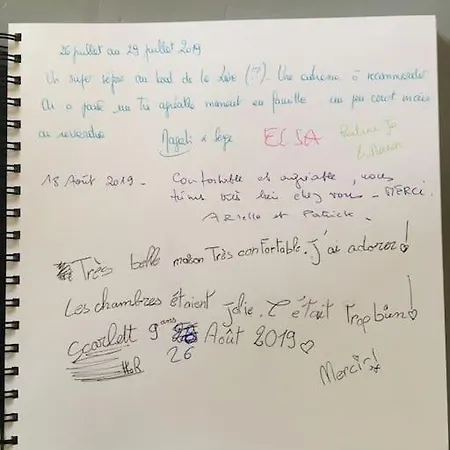 26 juillet au 29 juillet 2019
Un super repos au bord de la (?). Une adresse à recommander
On a passé un très agréable moment en famille un peu court mais
on reviendra Magali & Serge ELSA
18 Août 2019 - Confortable et agréable, nous
étions très bien chez vous - MERCI.
et Patrick -
Très belle maison Très confortable. J'ai adorer!
Les chambres étaient jolie. C'était trop bien!
Scarlett 9 ans 26 Août 2019
Merci!